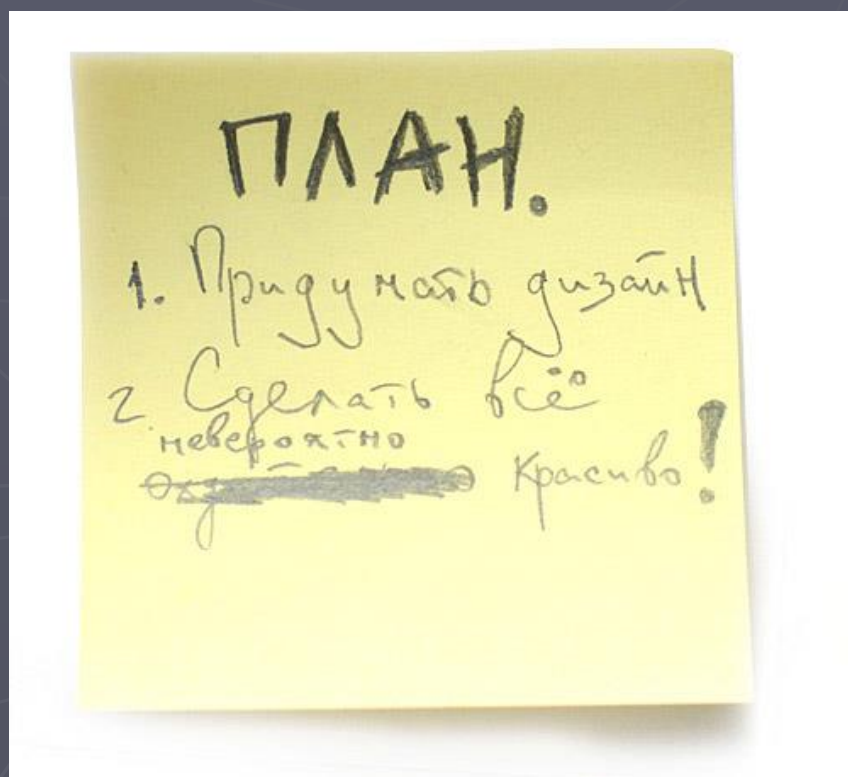 ПЛАН.
1. Придумать дизайн
2. Сделать всё
невероятно
красиво!